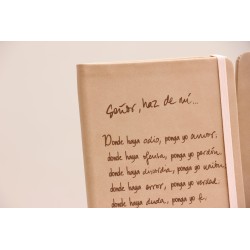 Señor, haz de mí...
Donde haya odio, ponga yo amor,
donde haya ofensa, ponga yo perdón,
donde haya discordia, ponga yo unión,
donde haya error, ponga yo verdad,
donde haya duda, ponga yo fe.